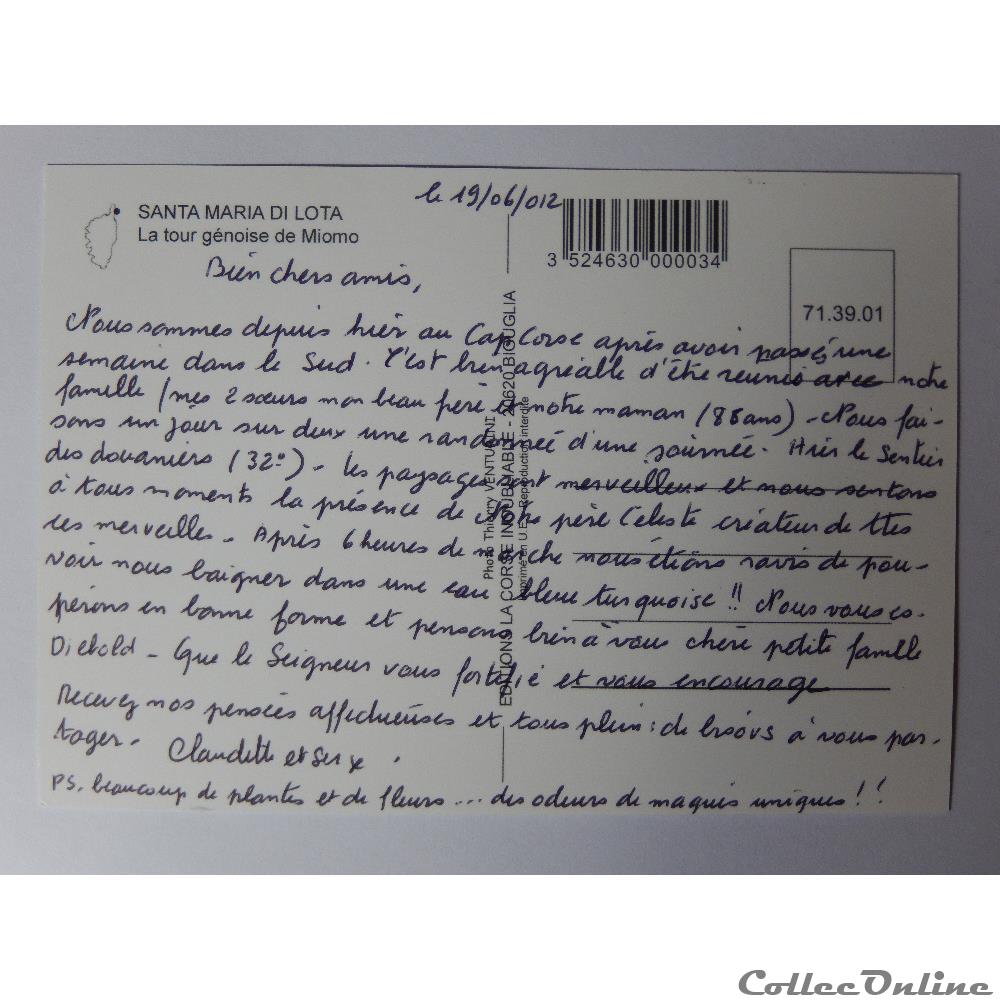 le 19/06/012
SANTA MARIA DI LOTA
La tour génoise de Miomo
3 524630 000034
71.39.01
Bien chers amis,
Nous sommes depuis hier au Cap Corse après avoir passé une
semaine dans le Sud. C'est bien agréable d'être reunis avec notre
famille (mes 2 sœurs mon beau père et notre maman (88ans) - Nous fai-
sons un jour sur deux une randonnée d'une journée. Hier le Sentier
des douaniers (32°) - Les paysages sont merveilleux et nous sentons
à tous moments la présence de Notre père Céleste créateur de ttes
ces merveilles - Après 6 heures de marche nous étions ravis de pou-
voir nous baigner dans une eau bleue turquoise !! Nous vous es-
pérons en bonne forme et pensons bien à vous chère petite famille
Diebold - Que le Seigneur vous fortifie et vous encourage
Recevez nos pensées affectueuses et tous plein de bisous à vous par-
tager - Claudette et
PS. beaucoup de plantes et de fleurs ... des odeurs de maquis uniques !!
EDITIONS LA CORSE INOUBLIABLE - 20620 BIGUGLIA
Photo Thierry VENTURINI
Imprimé en U.E. - Reproduction interdite
CollecOnline